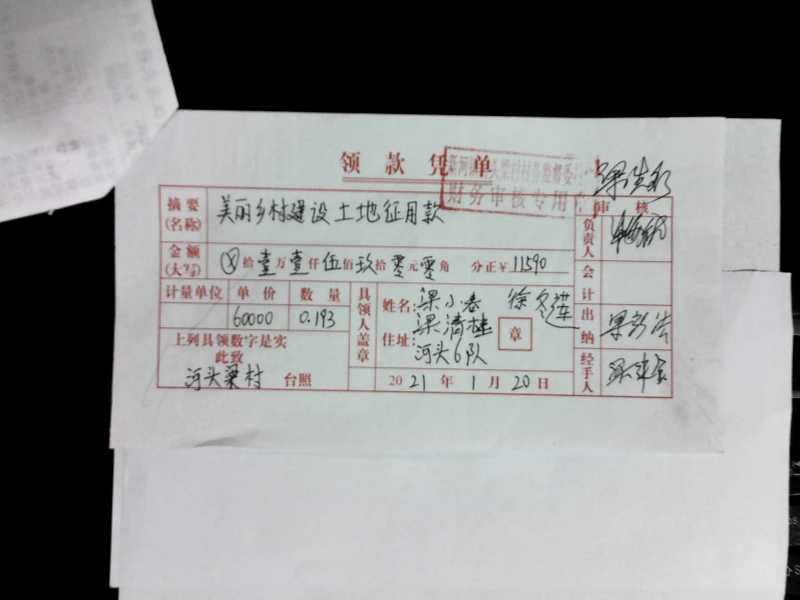 领款凭单
财务审核专用
审核
摘要(名称) 美丽乡村建设土地征用款
金额(大写) ⊗拾壹万壹仟伍佰玖拾零元零角 分正¥11590
计量单位 单价 数量
60000 0.193
上列具领数字是实
此致
河头梁村 台照
具领人盖章
姓名: 梁小春 徐冬莲
梁清桂
住址: 河头6队
章
2021年1月20日
负责人
会计
出纳
经手人